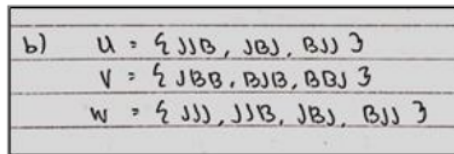 b) U = { JJB, JBJ, BJJ }
V = { JBB, BJB, BBJ }
W = { JJJ, JJB, JBJ, BJJ }